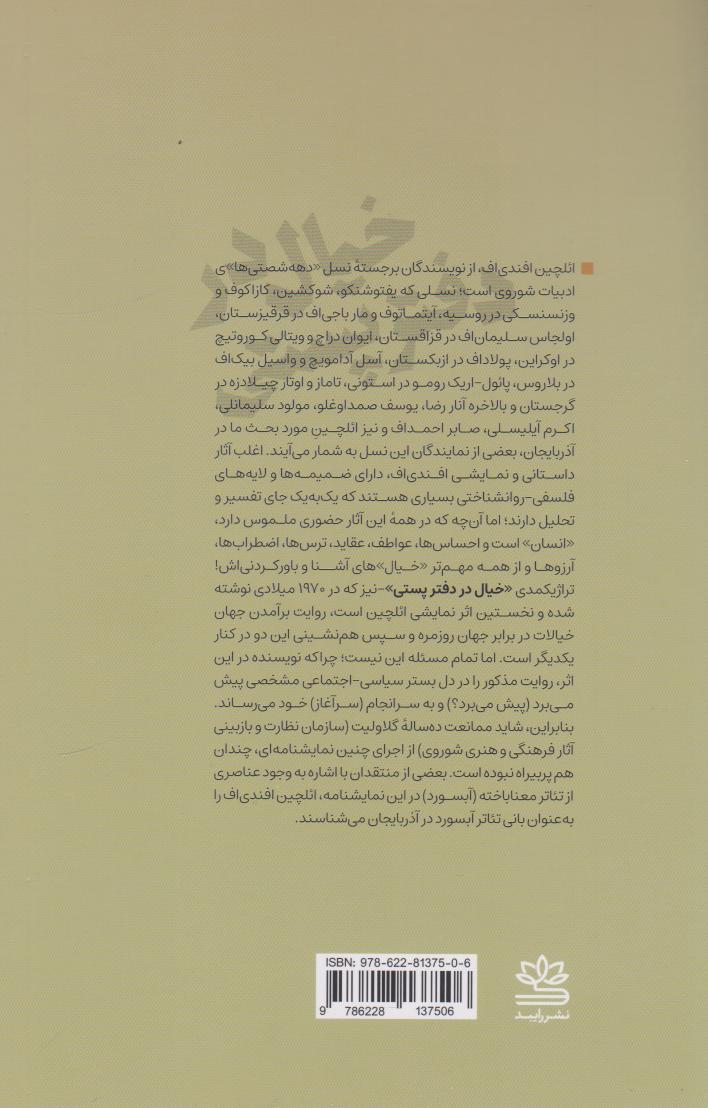 خیال در
دفتر پستی
ائلچین افندی‌اف، از نویسندگان برجستهٔ نسل «دهه‌شصتی‌ها»ی
ادبیات شوروی است؛ نسلی که یفتوشنکو، شوکشین، کازاکوف و
وزنسنسکی در روسیه، آیتماتوف و مار باجی‌اف در قرقیزستان،
اولجاس سلیمان‌اف در قزاقستان، ایوان دراچ و ویتالی کوروتیچ
در اوکراین، پولاداف در ازبکستان، آسل آدامویچ و واسیل بیک‌اف
در بلاروس، پائول-اریک رومو در استونی، تاماز و اوتار چیلادزه در
گرجستان و بالاخره آنار رضا، یوسف صمداوغلو، مولود سلیمانلی،
اکرم آیلیسلی، صابر احمداف و نیز ائلچینِ مورد بحث ما در
آذربایجان، بعضی از نمایندگان این نسل به شمار می‌آیند. اغلب آثار
داستانی و نمایشی افندی‌اف، دارای ضمیمه‌ها و لایه‌های
فلسفی-روانشناختی بسیاری هستند که یک‌به‌یک جای تفسیر و
تحلیل دارند؛ اما آن‌چه که در همهٔ این آثار حضوری ملموس دارد،
«انسان» است و احساس‌ها، عواطف، عقاید، ترس‌ها، اضطراب‌ها،
آرزوها و از همه مهم‌تر «خیال»های آشنا و باورکردنی‌اش!
تراژیکمدی «خیال در دفتر پستی»-نیز که در ۱۹۷۰ میلادی نوشته
شده و نخستین اثر نمایشی ائلچین است، روایت برآمدن جهان
خیالات در برابر جهان روزمره و سپس هم‌نشینی این دو در کنار
یکدیگر است. اما تمام مسئله این نیست؛ چراکه نویسنده در این
اثر، روایت مذکور را در دل بستر سیاسی-اجتماعی مشخصی پیش
می‌برد (پیش می‌برد؟) و به سرانجام (سرآغاز) خود می‌رساند.
بنابراین، شاید ممانعت ده‌سالهٔ گلاولیت (سازمان نظارت و بازبینی
آثار فرهنگی و هنری شوروی) از اجرای چنین نمایشنامه‌ای، چندان
هم پربیراه نبوده است. بعضی از منتقدان با اشاره به وجود عناصری
از تئاتر معناباخته (آبسورد) در این نمایشنامه، ائلچین افندی‌اف را
به‌عنوان بانی تئاتر آبسورد در آذربایجان می‌شناسند.
ISBN: 978-622-81375-0-6
9 786228 137506
نشر رایبد